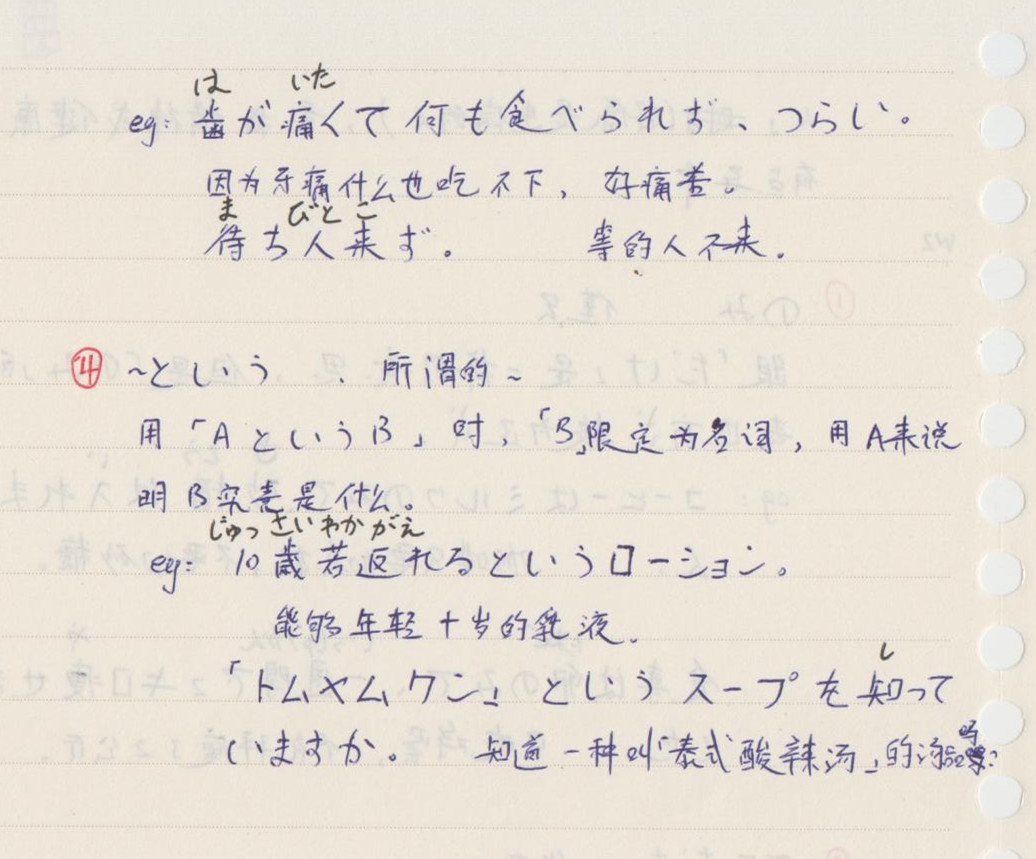 は いた
eg: 歯が痛くて何も食べられず、つらい。
因为牙痛什么也吃不下,好痛苦。
ま びと こ
待ち人来ず。 等的人不来.
④ ~という 、所谓的~
用「AというB」时,「B」限定为名词,用A来说
明B究竟是什么。
じゅっさいわかがえ
eg: 10歳若返れるというローション。
能够年轻十岁的乳液.
し
「トムヤムクン」というスープを知って
いますか。 知道一种叫「泰式酸辣汤」的汤吗?